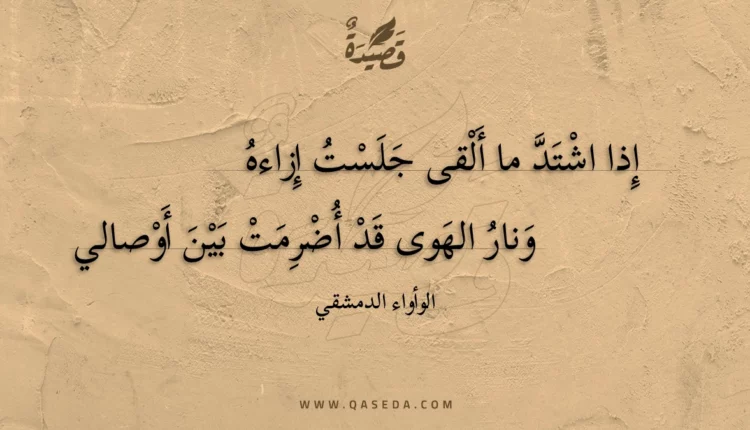 قَصِيدَةٌ
إِذا اشْتَدَّ ما أَلْقى جَلَسْتُ إِزاءهُ
وَنارُ الهَوى قَدْ أُضْرِمَتْ بَيْنَ أَوْصالي
الوأواء الدمشقي
WWW.QASEDA.COM